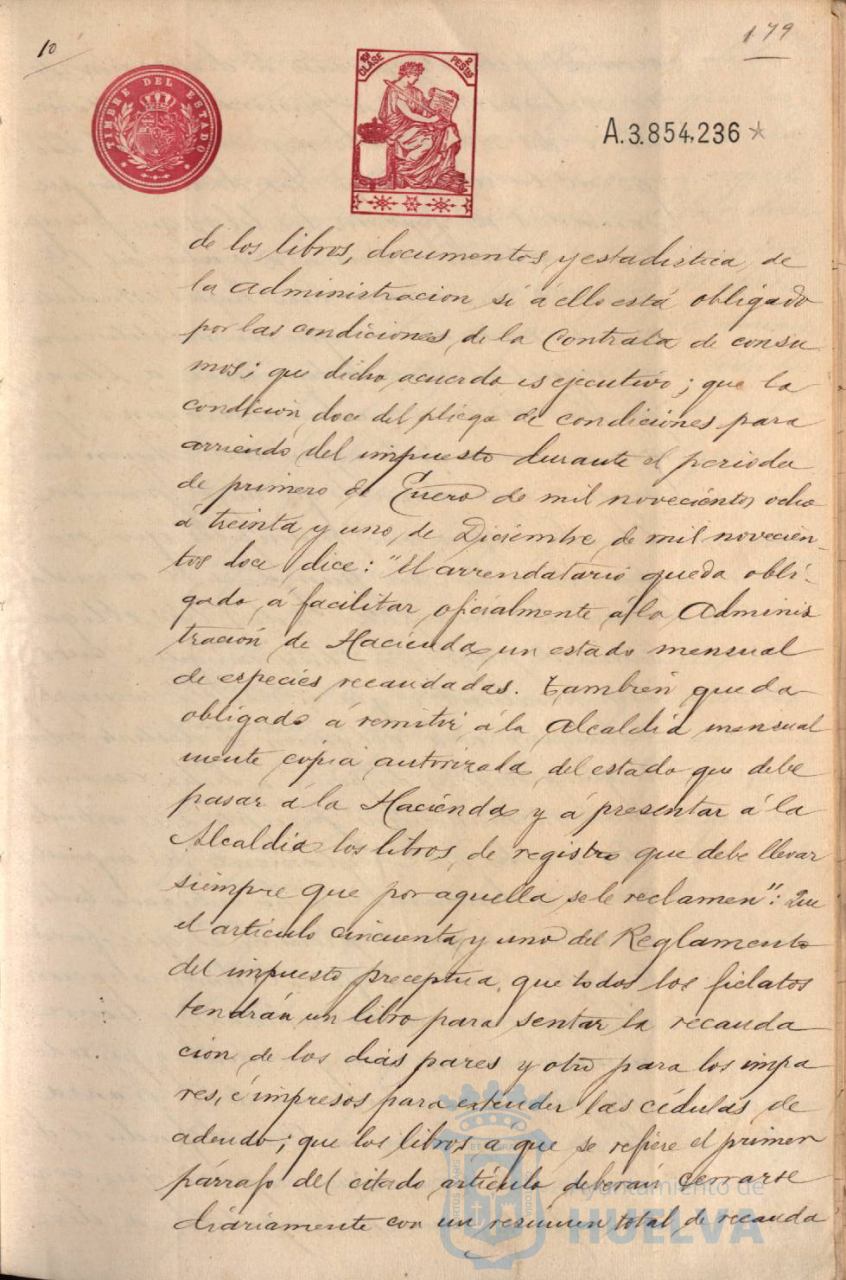 10
179
TIMBRE DEL ESTADO
10ª CLASE
2 PESTAS
A.3.854.236 *
de los libros, documentos y estadistica de
la administracion, si á ello está obligado
por las condiciones de la Contrata de consu
mos; que dicho acuerdo es ejecutivo; que la
condicion doce del pliego de condiciones para
arriendo del impuesto durante el periodo
de primero de Enero de mil novecientos ocho
á treinta y uno de Diciembre de mil novecien-
tos doce dice: "El arrendatario queda obli-
gado á facilitar oficialmente á la Adminis
tración de Hacienda un estado mensual
de especies recaudadas. Tambien queda
obligado á remitir á la Alcaldia mensual
mente copia autorizada del estado que debe
pasar á la Hacienda y á presentar á la
Alcaldia los libros de registro que debe llevar
siempre que por aquella se le reclamen": Que
el artículo cincuenta y uno del Reglamento
del impuesto preceptua que todos los fielatos
tendrán un libro para sentar la recauda
cion de los dias pares y otro para los impa
res, é impresos para extender las cédulas de
adeudo; que los libros a que se refiere el primer
párrafo del citado artículo deberán cerrarse
diariamente con un resumen total de recauda
Ayuntamiento de
HUELVA